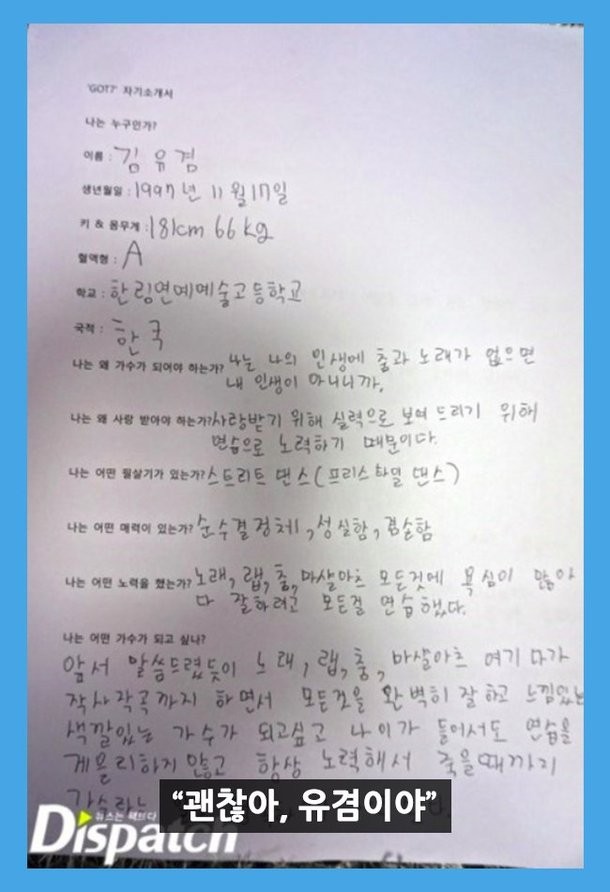 'GOT7' 자기소개서
나는 누구인가?
이름 : 김유겸
생년월일 : 1997년 11월17일
키 & 몸무게 : 181cm 66kg
혈액형 : A
학교 : 한림연예예술고등학교
국적 : 한국
나는 왜 가수가 되어야 하는가? 나는 나의 인생에 춤과 노래가 없으면
내 인생이 아니니까.
나는 왜 사랑 받아야 하는가? 사랑받기 위해 실력으로 보여 드리기 위해
연습으로 노력하기 때문이다.
나는 어떤 필살기가 있는가? 스트리트 댄스(프리스타일 댄스)
나는 어떤 매력이 있는가? 순수결정체, 성실함, 겸손함
나는 어떤 노력을 했는가? 노래, 랩, 춤, 마샬아츠 모든것에 욕심이 많아
다 잘하려고 모든걸 연습했다.
나는 어떤 가수가 되고 싶나?
앞서 말씀드렸듯이 노래, 랩, 춤, 마샬아츠 여기다가
작사작곡까지 하면서 모든것을 완벽히 잘하고 느낌있는
색깔있는 가수가 되고싶고 나이가 들어서도 연습을
게을리하지않고 항상 노력해서 죽을때까지
가수라는
"괜찮아, 유겸이야"
뉴스는 팩트다
Dispatch